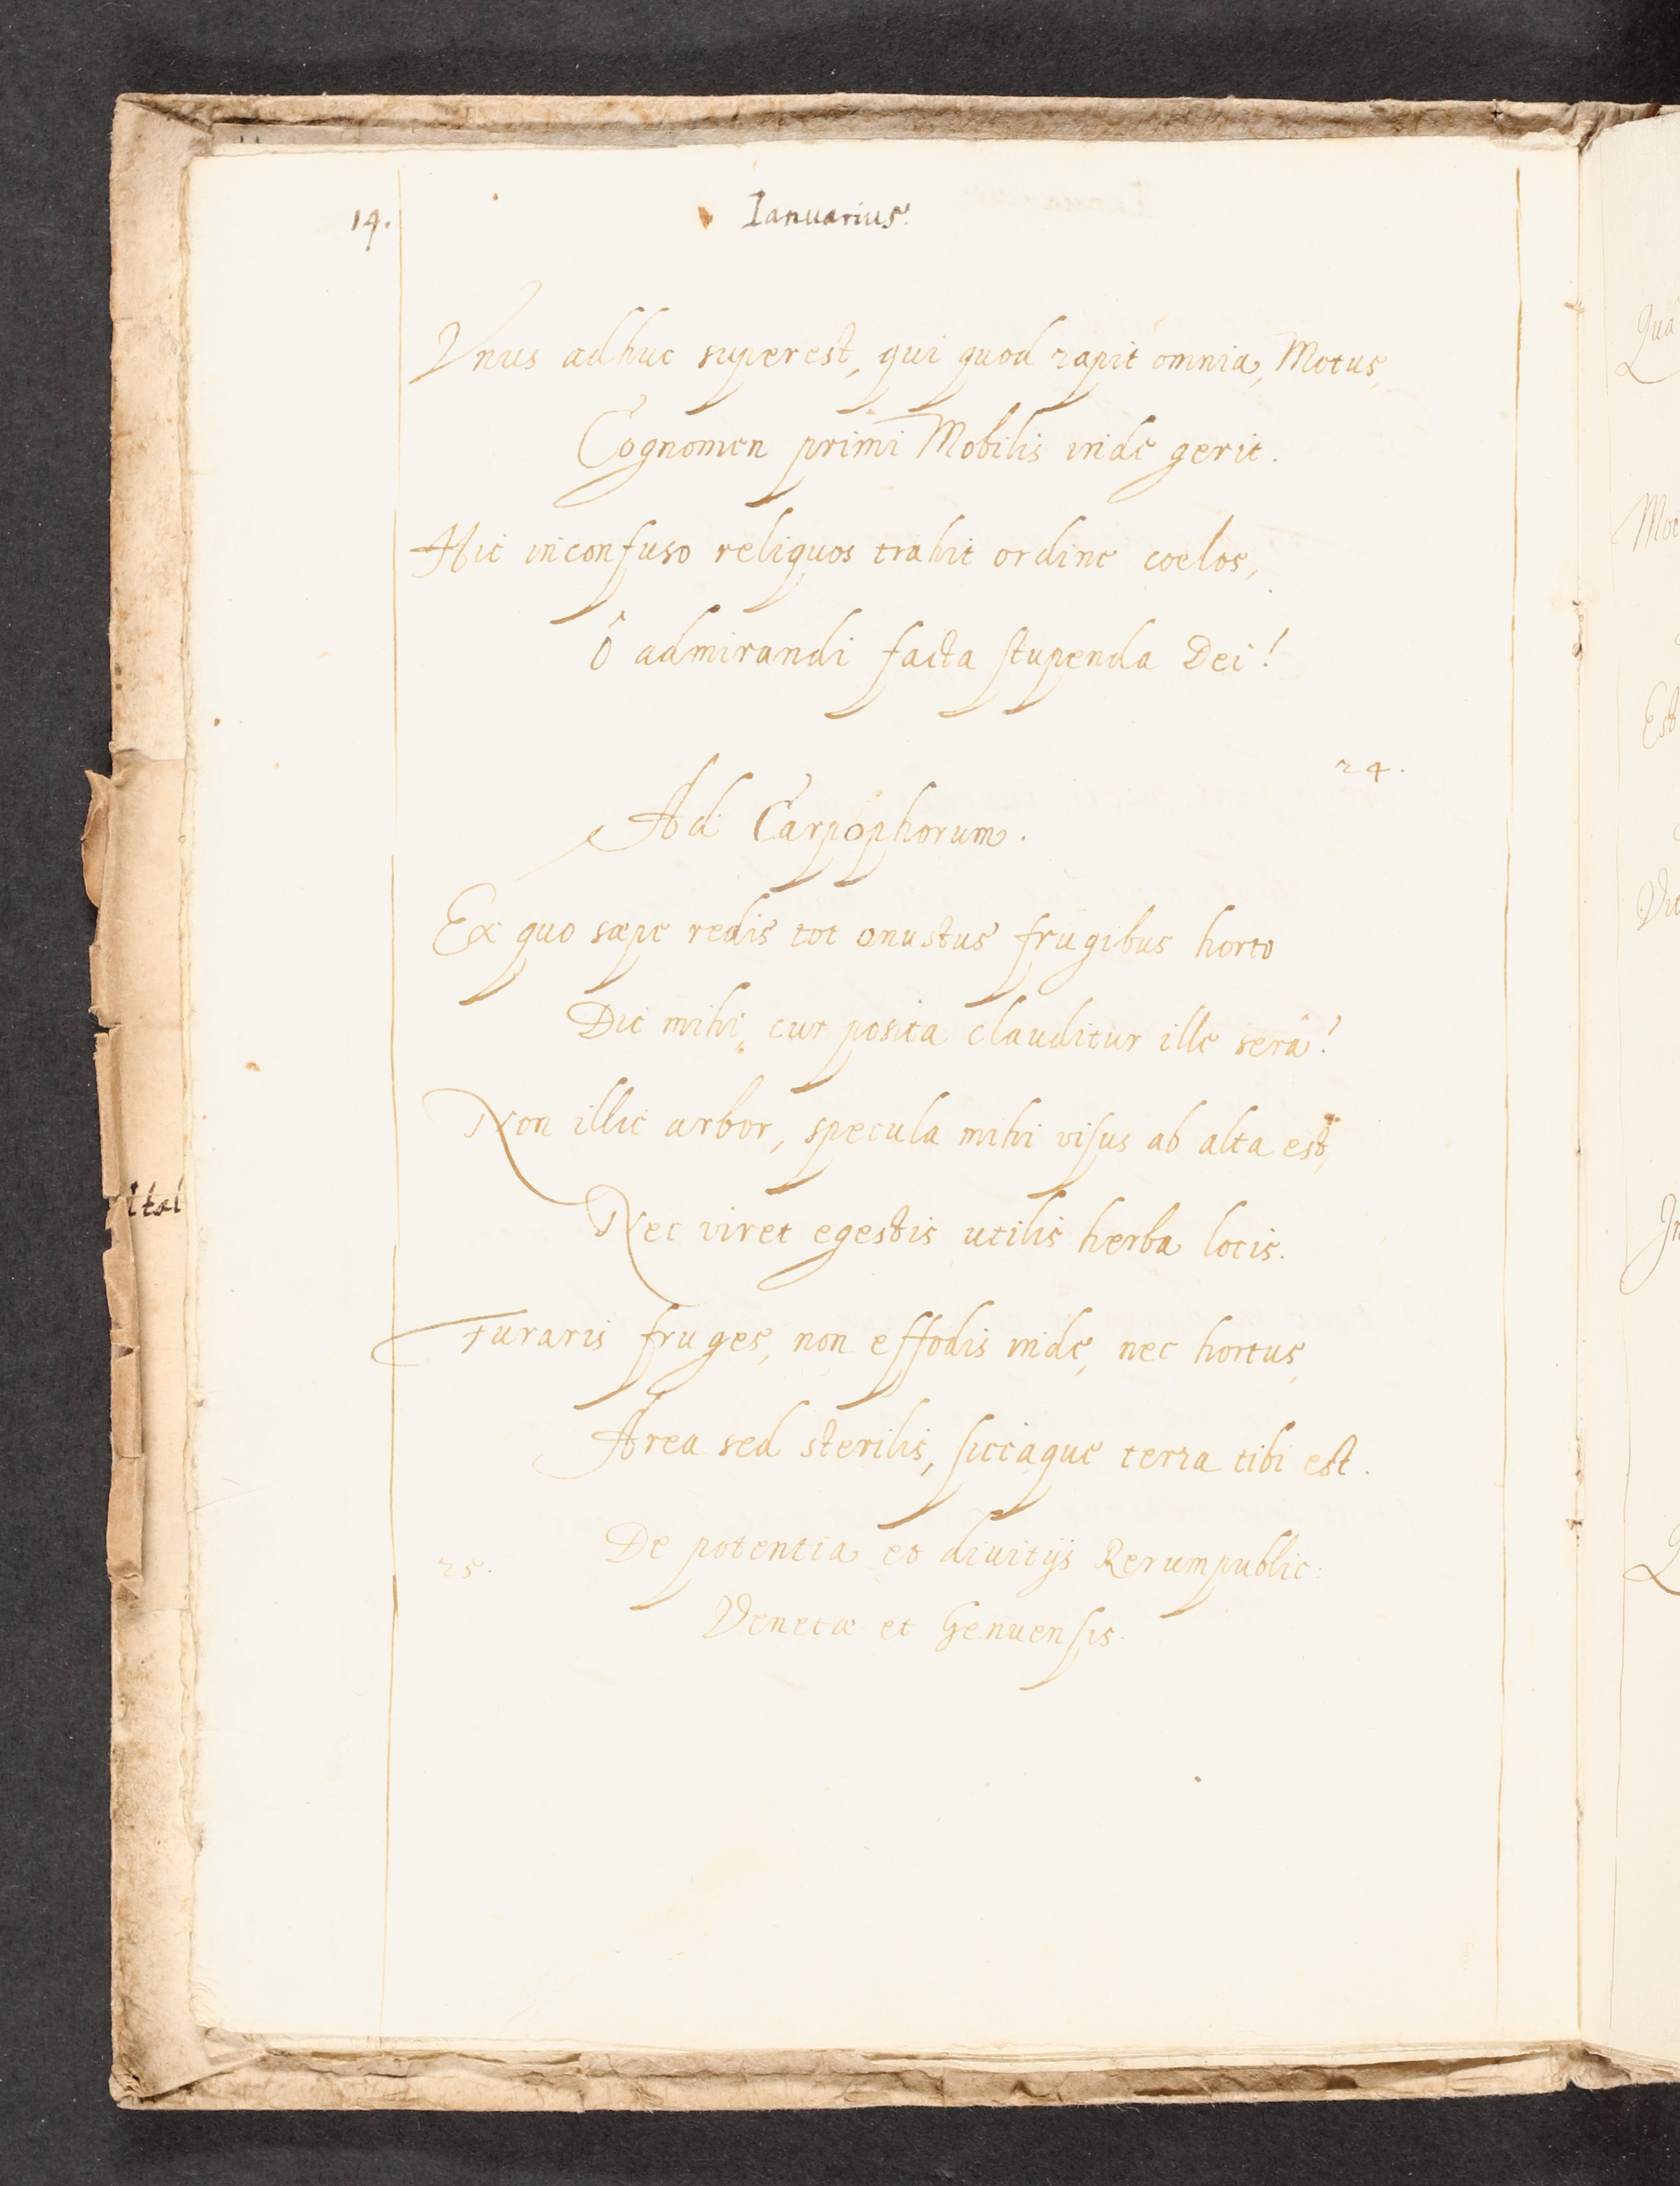 14.
Ianuarius.
Vnus adhuc superest, qui quod rapit omnia, Motus,
Cognomen primi Mobilis inde gerit.
Hic inconfuso reliquos trahit ordine coelos,
Ô admirandi facta stupenda Dei!
24.
Ad Carpophorum.
Ex quo sæpe redis tot onustus frugibus horto
Dic mihi, cur posita clauditur ille serâ?
Non illic arbor, specula mihi visus ab alta est,
Nec viret egestis utilis herba locis.
Furaris fruges, non effodis inde, nec hortus,
Area sed sterilis, siccaque terra tibi est.
25.
De potentia et diuitijs Rerumpublic:
Venetæ et Genuensis.
ital
Qua
Est